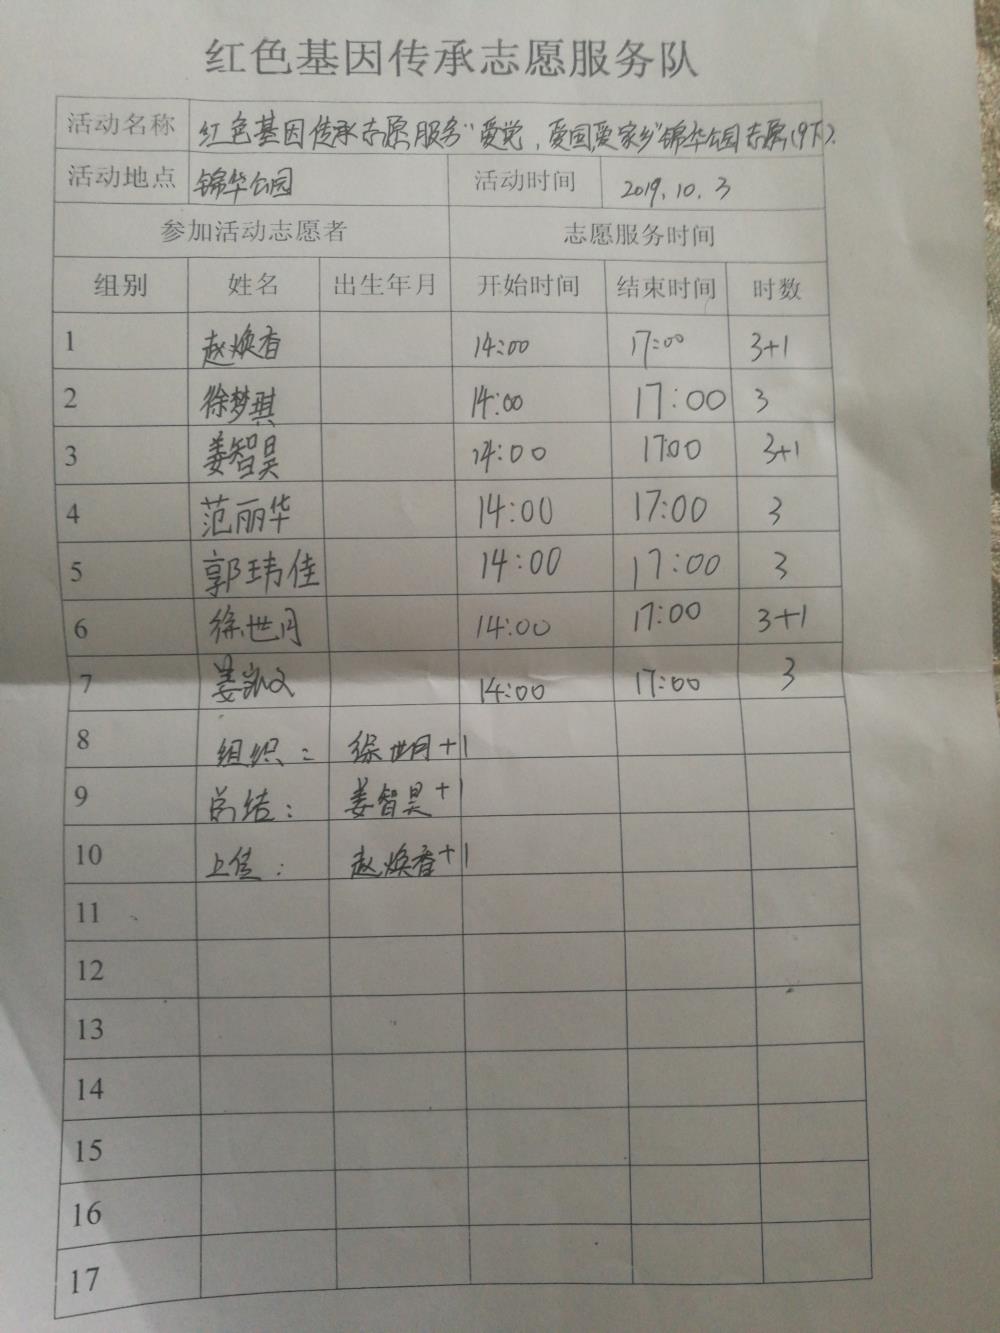 红色基因传承志愿服务队
活动名称 红色基因传承志愿服务"爱党,爱国爱家乡"锦华公园志愿(9下).
活动地点 锦华公园 活动时间 2019.10.3
参加活动志愿者 志愿服务时间
组别 姓名 出生年月 开始时间 结束时间 时数
1 赵焕香 14:00 17:00 3+1
2 徐梦琪 14:00 17:00 3
3 姜智昊 14:00 17:00 3+1
4 范丽华 14:00 17:00 3
5 郭玮佳 14:00 17:00 3
6 徐世月 14:00 17:00 3+1
7 姜凯文 14:00 17:00 3
8 组织: 徐世月+1
9 总结: 姜智昊+1
10 上传: 赵焕香+1
11
12
13
14
15
16
17